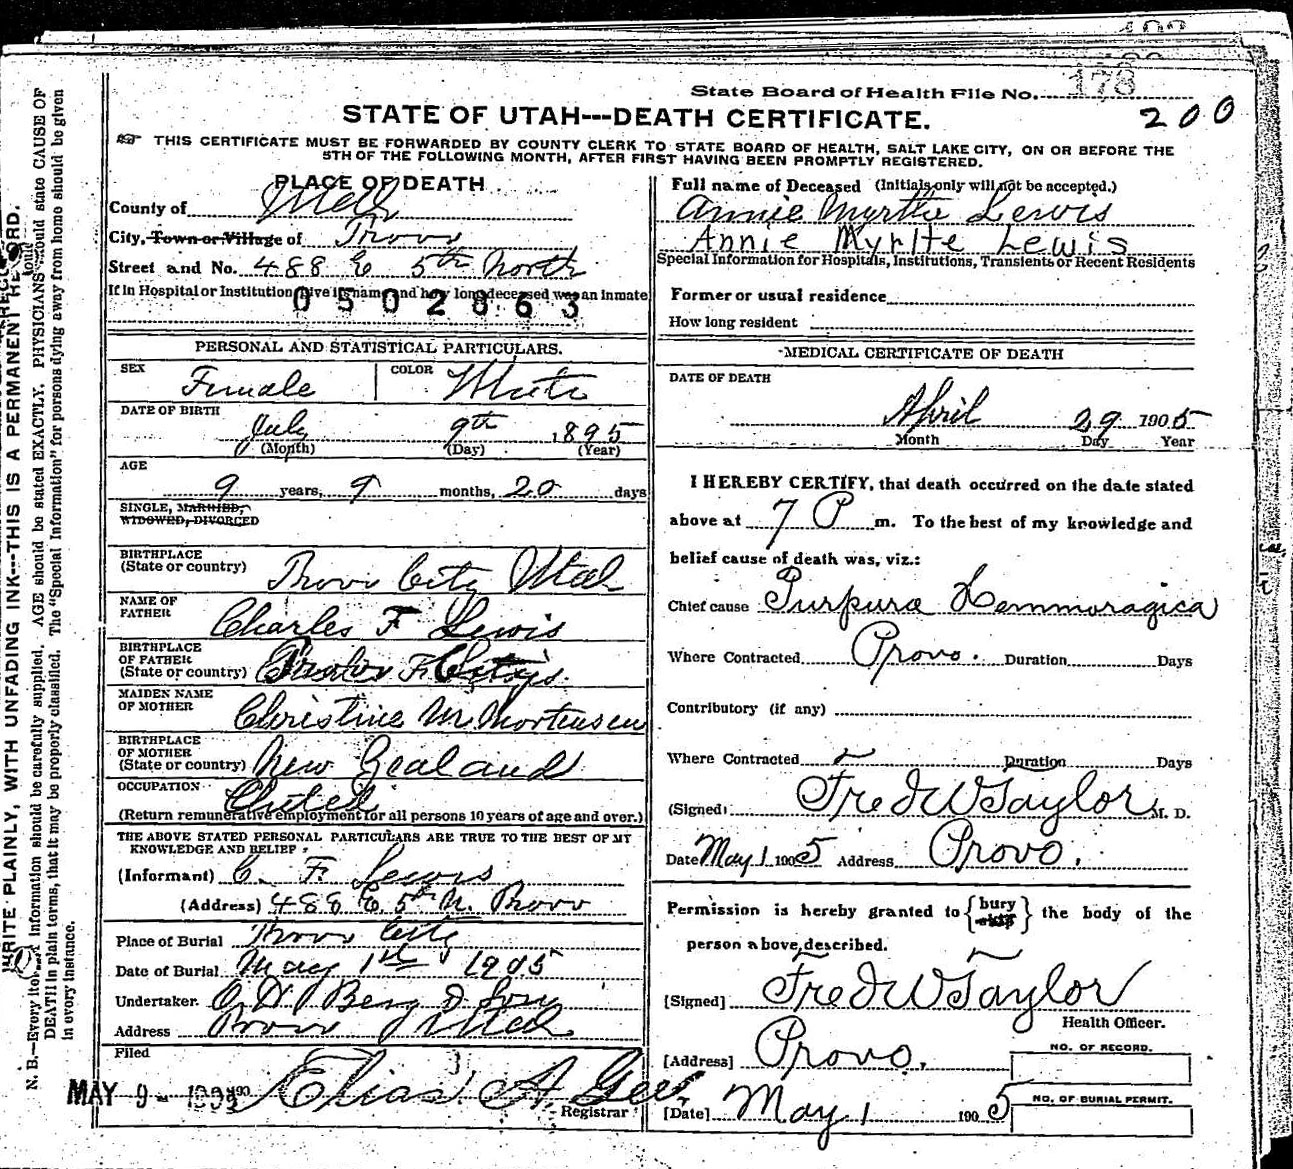 178
State Board of Health File No.
200
STATE OF UTAH---DEATH CERTIFICATE.
THIS CERTIFICATE MUST BE FORWARDED BY COUNTY CLERK TO STATE BOARD OF HEALTH, SALT LAKE CITY, ON OR BEFORE THE
5TH OF THE FOLLOWING MONTH, AFTER FIRST HAVING BEEN PROMPTLY REGISTERED.
WRITE PLAINLY, WITH UNFADING INK---THIS IS A PERMANENT RECORD.
N. B.—Every item of Information should be carefully supplied. AGE should be stated EXACTLY. PHYSICIANS should state CAUSE OF
DEATH in plain terms, that it may be properly classified. The "Special Information" for persons dying away from home should be given
in every instance.
PLACE OF DEATH
County of Utah
City, Town or Village of Provo
Street and No. 488 E 5th North
If in Hospital or Institution give its name and how long deceased was an inmate
0502863
PERSONAL AND STATISTICAL PARTICULARS.
SEX Female COLOR White
DATE OF BIRTH
July 9th 1895
(Month) (Day) (Year)
AGE
9 years, 9 months, 20 days
SINGLE, MARRIED,
WIDOWED, DIVORCED
BIRTHPLACE
(State or country) Provo City Utah
NAME OF
FATHER Charles F Lewis
BIRTHPLACE
OF FATHER
(State or country)
MAIDEN NAME
OF MOTHER Christine M Mortensen
BIRTHPLACE
OF MOTHER
(State or country) New Zealand
OCCUPATION
(Return remunerative employment for all persons 10 years of age and over.)
THE ABOVE STATED PERSONAL PARTICULARS ARE TRUE TO THE BEST OF MY
KNOWLEDGE AND BELIEF
(Informant) C. F. Lewis
(Address) 488 E 5th N. Provo
Place of Burial Provo City
Date of Burial May 1st 1905
Undertaker. O. H. Berg & Son
Address Provo Utah
Filed
MAY 9 - Elias A Gee.
Registrar
Full name of Deceased (Initials only will not be accepted.)
Annie Myrtle Lewis
Annie Myrlte Lewis
Special Information for Hospitals, Institutions, Transients or Recent Residents
Former or usual residence
How long resident
MEDICAL CERTIFICATE OF DEATH
DATE OF DEATH
April 29 1905
Month Day Year
I HEREBY CERTIFY, that death occurred on the date stated
above at 7 P m. To the best of my knowledge and
belief cause of death was, viz.:
Chief cause Purpura Hemmoragica
Where Contracted Provo. Duration Days
Contributory (if any)
Where Contracted Duration Days
(Signed) Fred W Taylor M. D.
Date May 1 1905 Address Provo.
Permission is hereby granted to { bury } the body of the
person above described.
[Signed] Fred W Taylor
Health Officer.
[Address] Provo.
NO. OF RECORD.
[Date] May 1 1905
NO. OF BURIAL PERMIT.